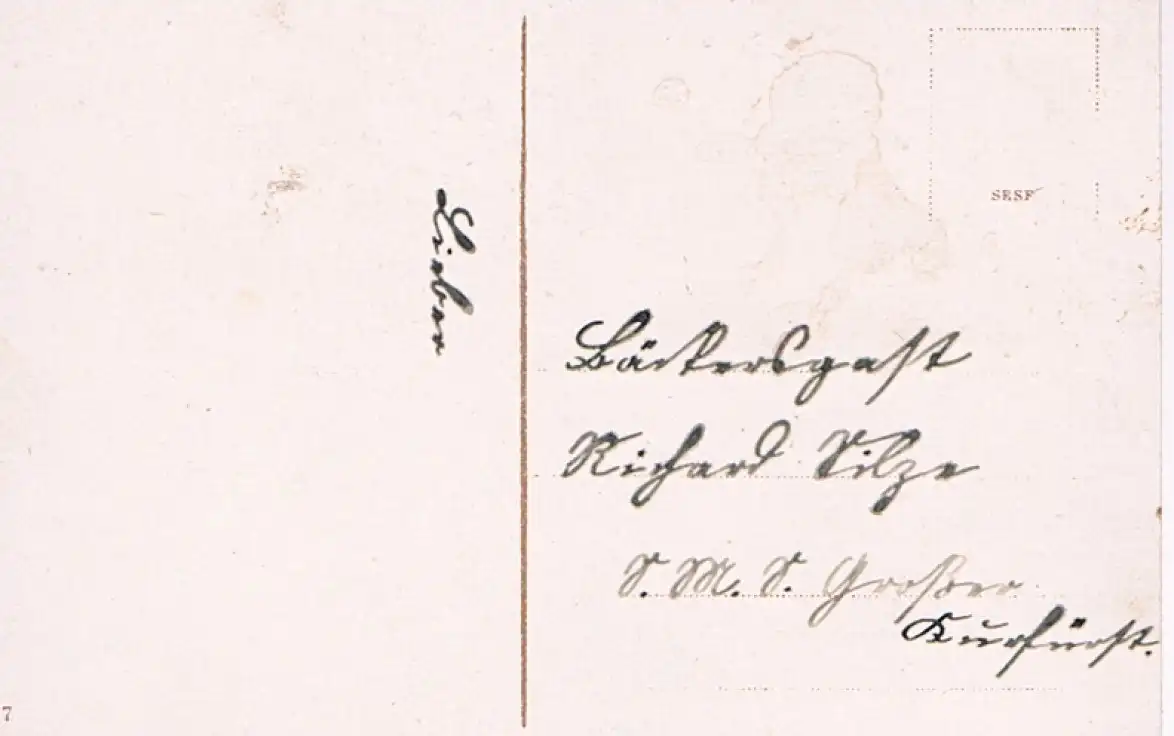 Lieber
SESF
Bäckersgast
Richard Silze
S. M. S. Großer
Kurfürst.
7